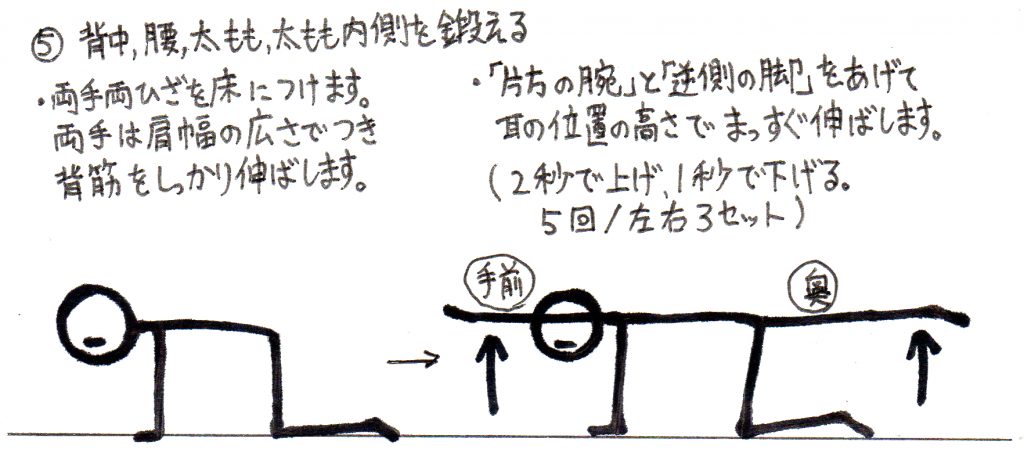 ⑤ 背中,腰,太もも,太もも内側を鍛える
・両手両ひざを床につけます。
両手は肩幅の広さでつき
背筋をしっかり伸ばします。
・「片方の腕」と「逆側の脚」をあげて
耳の位置の高さでまっすぐ伸ばします。
(2秒で上げ、1秒で下げる。
5回/左右3セット)
手前
奥